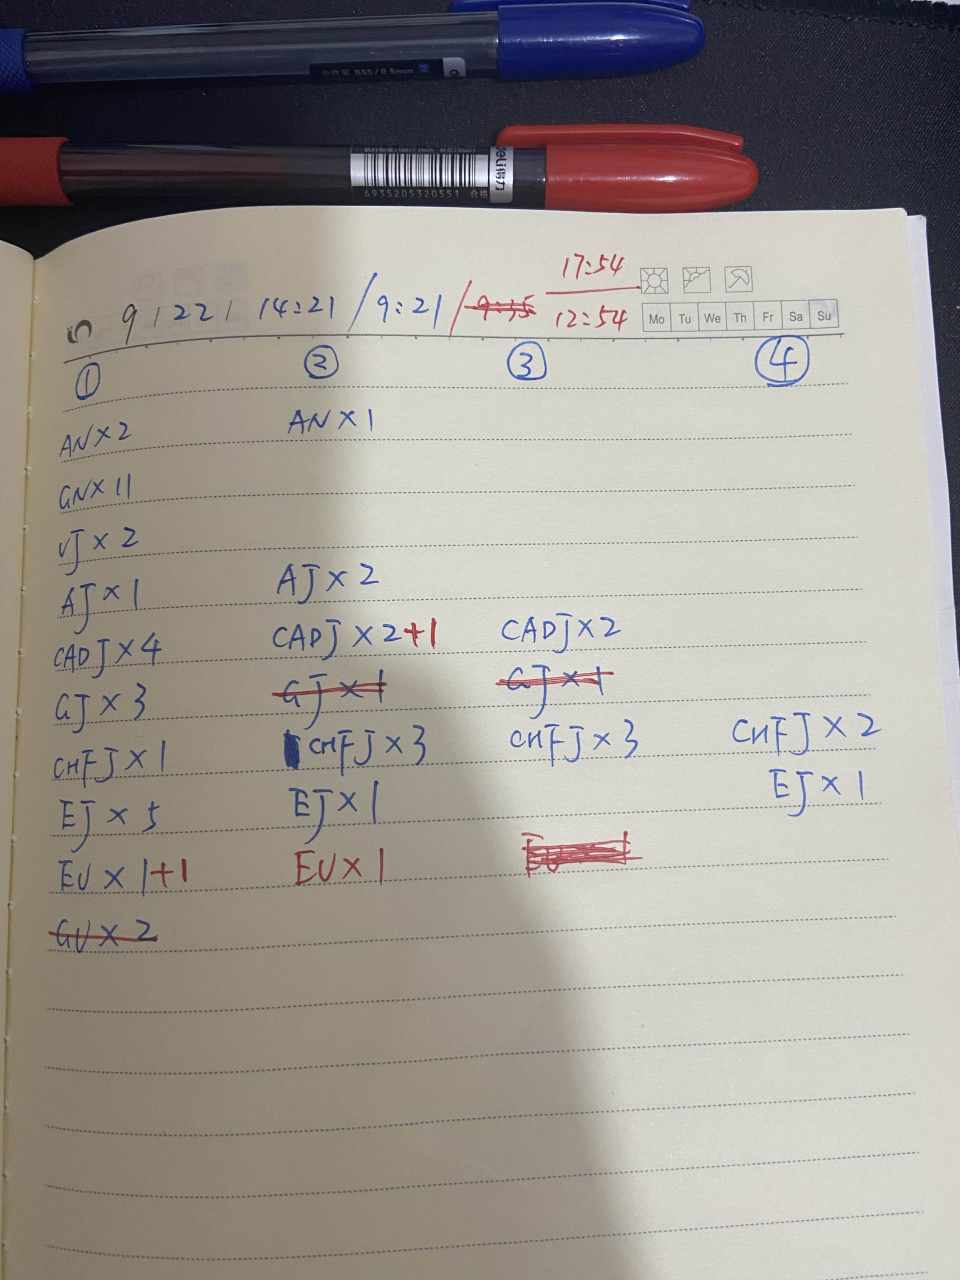 0.5mm
deli得力
6935205320551 合格
17:54
9 / 22 / 14:21 / 9:21 / 9:35 12:54 Mo Tu We Th Fr Sa Su
① ② ③ ④
AN×2 AN×1
GN×11
VJ×2
AJ×1 AJ×2
CADJ×4 CADJ×2+1 CADJ×2
GJ×3 GJ×1 GJ×1
CHFJ×1 CHFJ×3 CHFJ×3 CHFJ×2
EJ×5 EJ×1 EJ×1
EU×1+1 EU×1
GU×2